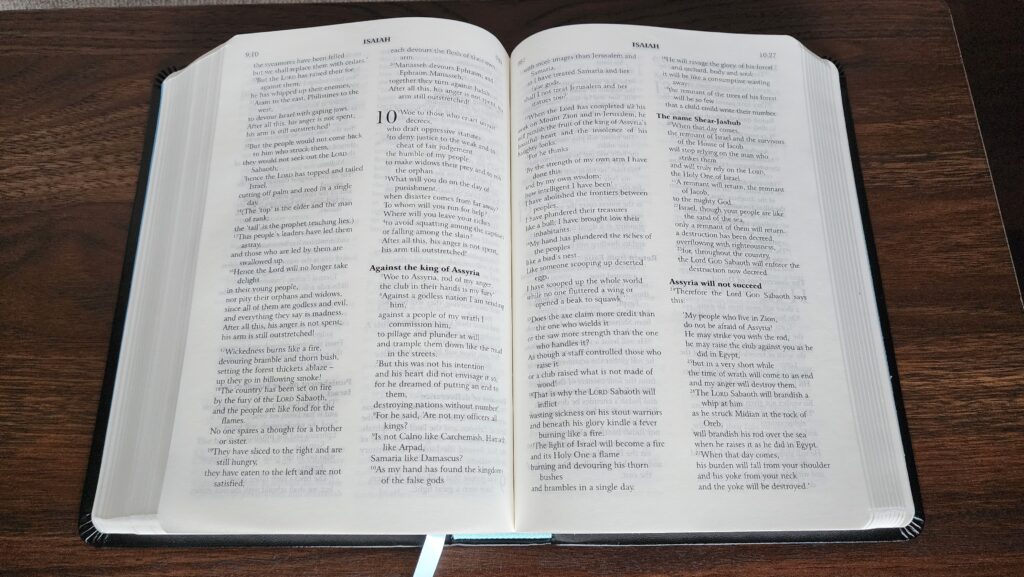 ISAIAH
9:10
the sycamores have been felled
but we shall replace them with cedars.'
But the LORD has raised their foe
against them
he has whipped up their enemies,
Aram to the east, Philistines to the
west,
to devour Israel with gaping jaws.
After all this, his anger is not spent,
his arm is still outstretched!
But the people would not come back
to him who struck them,
they would not seek out the LORD
Sabaoth;
hence the LORD has topped and tailed
Israel,
cutting off palm and reed in a single
day.
(The 'top' is the elder and the man
of rank;
the 'tail' is the prophet teaching lies.)
This people's leaders have led them
astray,
and those who are led by them are
swallowed up.
Hence the Lord will no longer take
delight
in their young people,
nor pity their orphans and widows,
since all of them are godless and evil,
and everything they say is madness.
After all this, his anger is not spent;
his arm is still outstretched!
Wickedness burns like a fire,
devouring bramble and thorn bush,
setting the forest thickets ablaze –
up they go in billowing smoke!
The country has been set on fire
by the fury of the LORD Sabaoth,
and the people are like food for the
flames.
No one spares a thought for a brother
or sister.
They have sliced to the right and are
still hungry,
they have eaten to the left and are not
satisfied,
each devours the flesh of
arm:
Manasseh devours Ephraim, and
Ephraim Manasseh,
together they turn against Judah.
After all this, his anger is not spent,
arm still outstretched!
10 Woe to those who enact
decrees,
who draft oppressive statutes
to deny justice to the weak and to
cheat of fair judgement
the humble of my people,
to make widows their prey and to rob
the orphan.
What will you do on the day of
punishment,
when disaster comes from far away?
To whom will you run for help?
Where will you leave your riches,
to avoid squatting among the captive
or falling among the slain?
After all this, his anger is not spent,
his arm till outstretched!
Against the king of Assyria
Woe to Assyria, rod of my anger,
the club in their hands is my fury!
Against a godless nation I am sending
him,
against a people of my wrath I
commission him,
to pillage and plunder at will
and trample them down like the mud
in the streets.
But this was not his intention
and his heart did not envisage it so,
for he dreamed of putting an end to
them,
destroying nations without number!
For he said, 'Are not my officers all
kings?
Is not Calno like Carchemish, Hamath
like Arpad,
Samaria like Damascus?
10 As my hand has found the kingdoms
of the false gods
ISAIAH
10:27
with more images than Jerusalem and
Samaria,
as I have treated Samaria and her
false gods,
shall I not treat Jerusalem and her
statues too?'
When the LORD has completed all his
work on Mount Zion and in Jerusalem, he
will punish the fruit of the king of Assyria's
boastful heart and the insolence of his
haughty looks.
For he thinks:
'By the strength of my own arm I have
done this
and by my own wisdom:
how intelligent I have been!
I have abolished the frontiers between
peoples,
I have plundered their treasures
like a bull, I have brought low their
inhabitants.
My hand has plundered the riches of
the peoples
like a bird's nest.
Like someone scooping up deserted
eggs,
I have scooped up the whole world
while no one fluttered a wing or
opened a beak to squawk.'
Does the axe claim more credit than
the one who wields it
or the saw more strength than the one
who handles it?
As though a staff controlled those who
raise it
or a club raised what is not made of
wood!
That is why the LORD Sabaoth will
inflict
wasting sickness on his stout warriors
and beneath his glory kindle a fever
burning like a fire.
The light of Israel will become a fire
and its Holy One a flame
burning and devouring his thorn
bushes
and brambles in a single day.
He will ravage the glory of his forest
and orchard, body and soul:
it will be like a consumptive wasting
away;
the remnant of the trees of his forest
will be so few
that a child could write their number.
The name Shear-Jashub
When that day comes,
the remnant of Israel and the survivors
of the House of Jacob
will stop relying on the man who
strikes them
and will truly rely on the LORD,
the Holy One of Israel.
A remnant will return, the remnant
of Jacob,
to the mighty God.
Israel, though your people are like
the sand of the sea,
only a remnant of them will return:
a destruction has been decreed,
overflowing with righteousness,
for, throughout the country,
the Lord GOD Sabaoth will enforce the
destruction now decreed.
Assyria will not succeed
Therefore the Lord GOD Sabaoth says
this:
'My people who live in Zion,
do not be afraid of Assyria!
He may strike you with the rod,
he may raise the club against you as he
did in Egypt,
but in a very short while
the time of wrath will come to an end
and my anger will destroy them.
The LORD Sabaoth will brandish a
whip at him
as he struck Midian at the rock of
Oreb,
will brandish his rod over the sea
when he raises it as he did in Egypt.
When that day comes,
his burden will fall from your shoulder
and his yoke from your neck
and the yoke will be destroyed.'